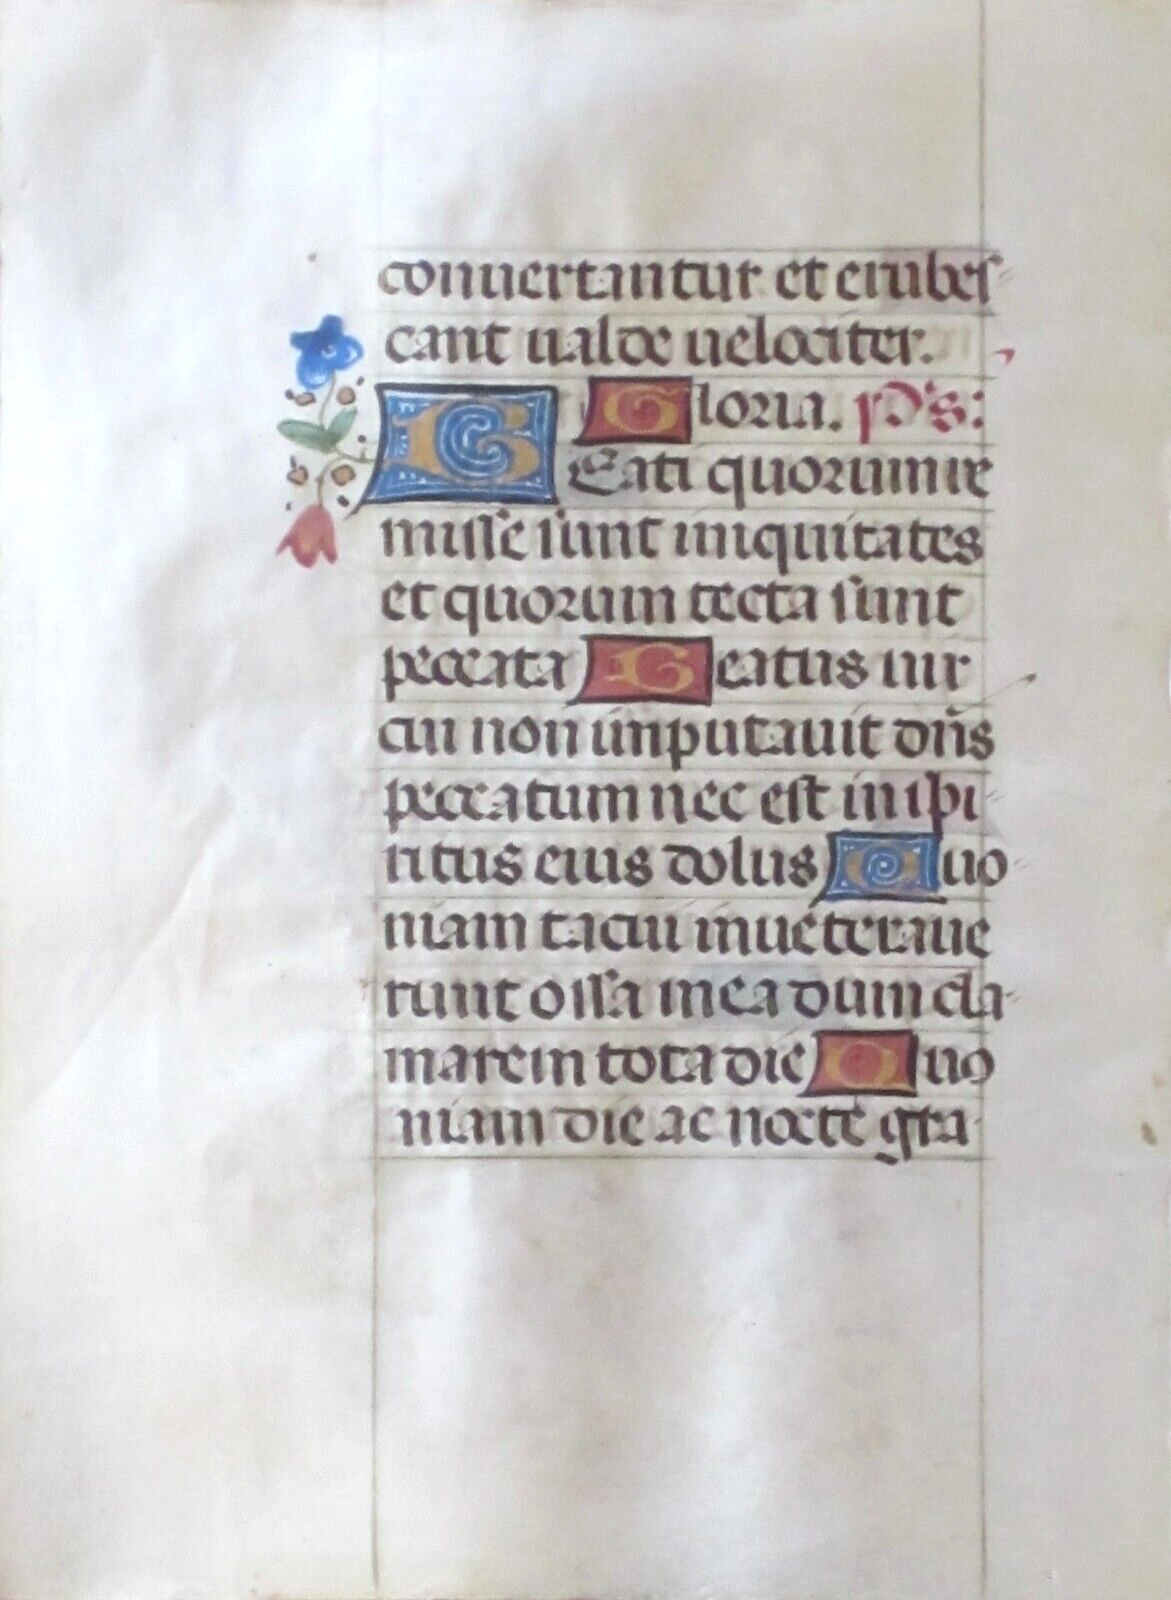 conuertantur et erubes
cant ualde uelociter.
Gloria. ps:
BEati quorum re
misse sunt iniquitates
et quorum tecta sunt
peccata Beatus uir
cui non imputauit dñs
peccatum nec est in spi
ritus eius dolus Quo
niam tacui inueteraue
runt ossa mea dum cla
marem tota die Quo
niam die ac nocte gra